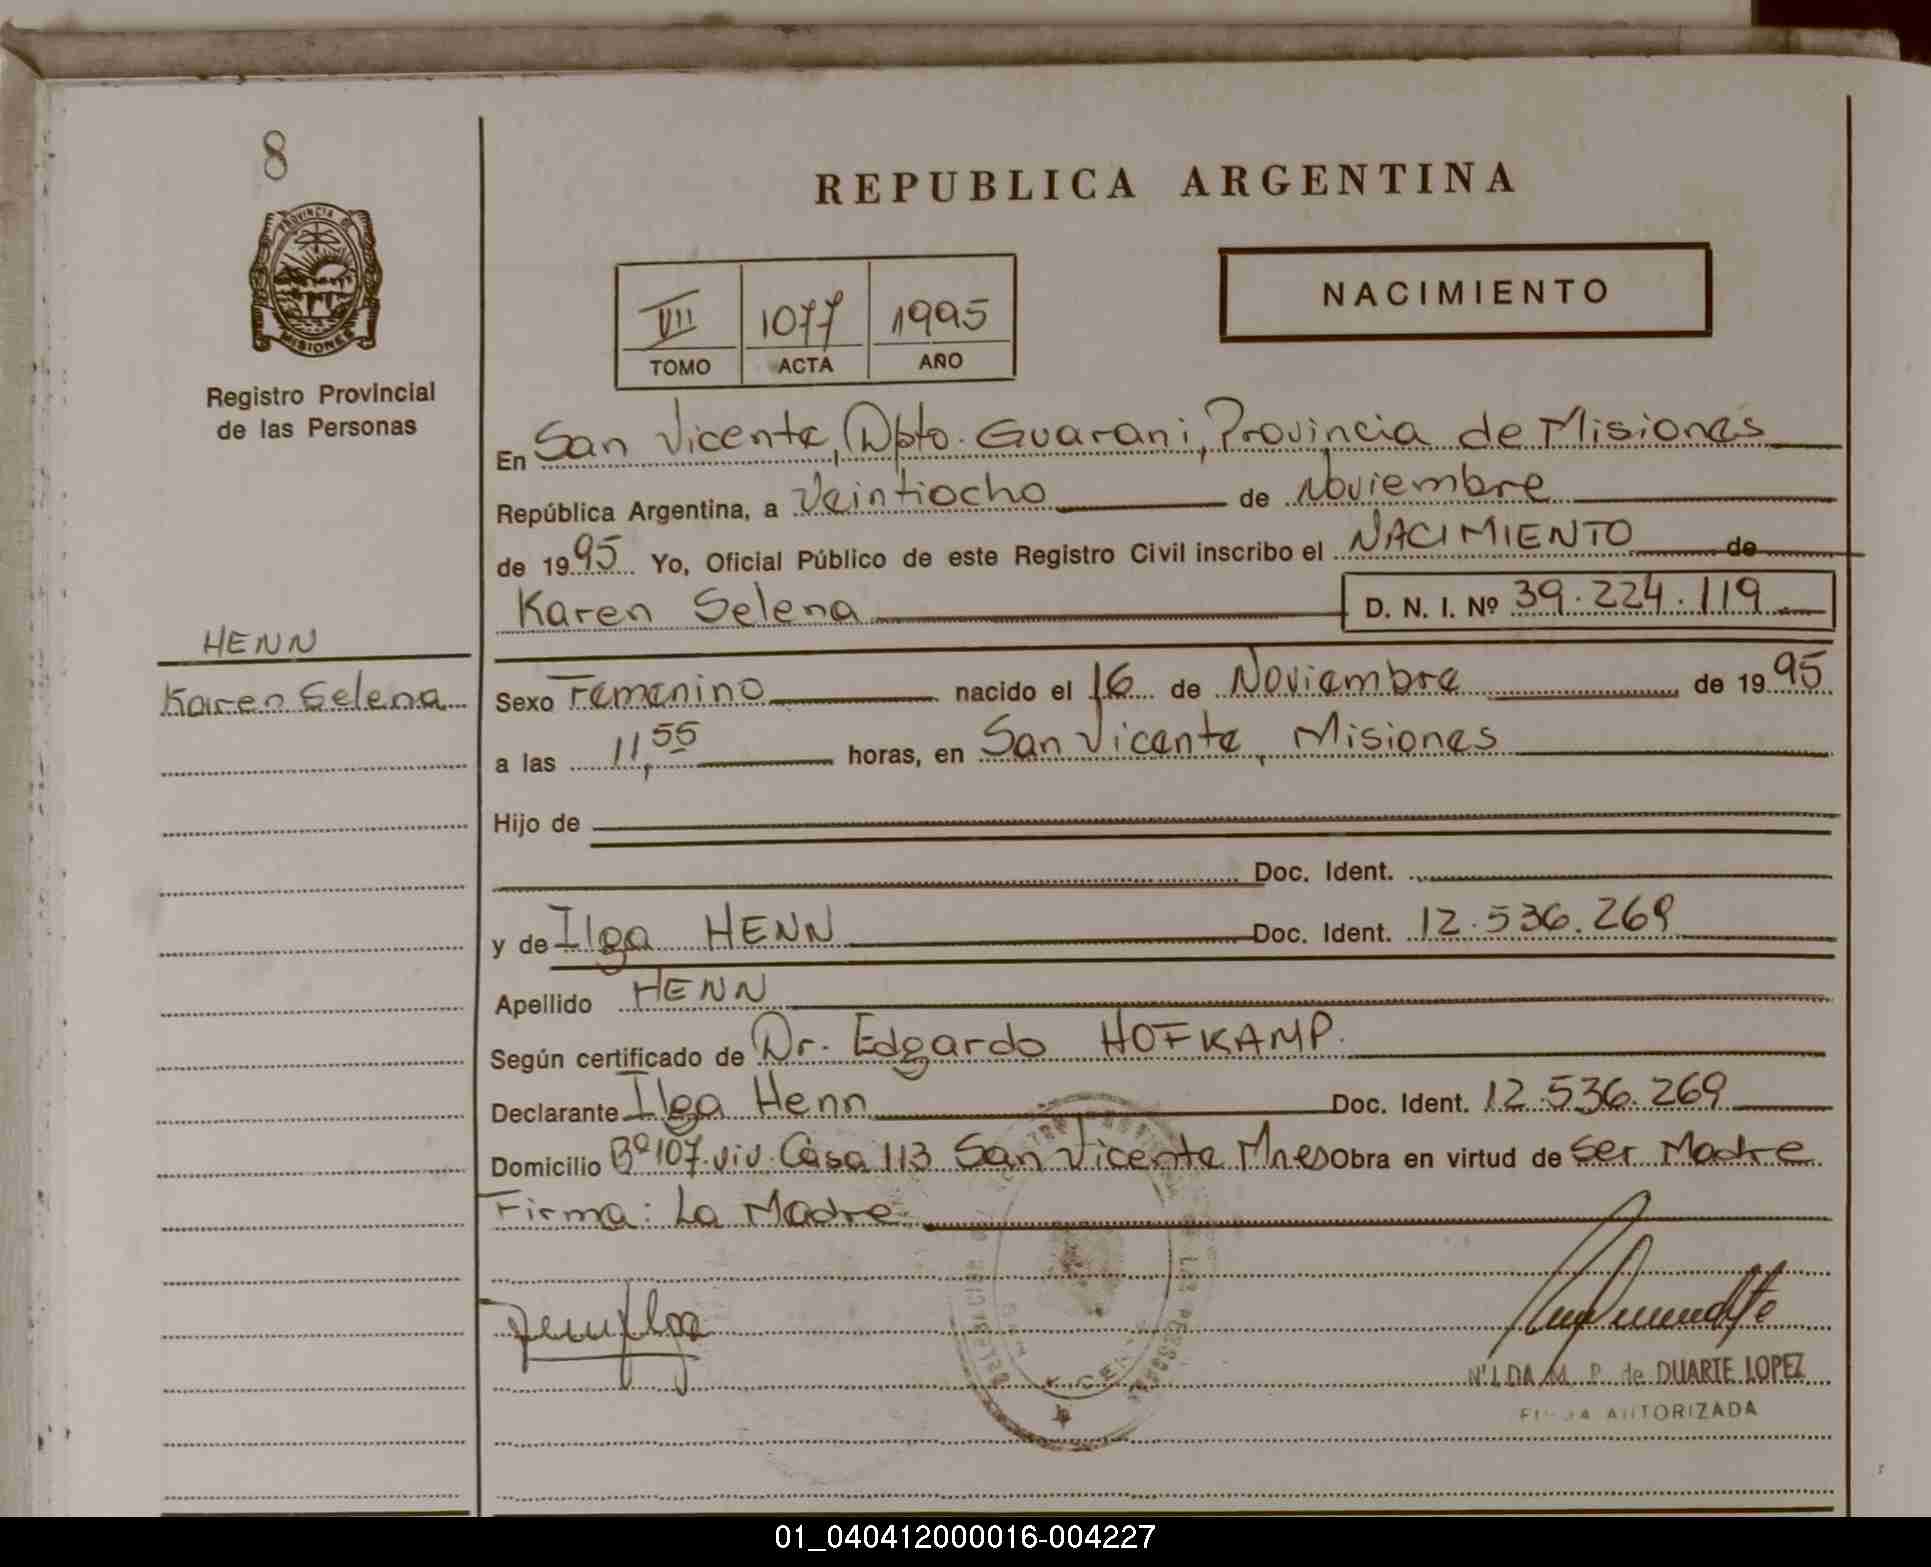 8
REPUBLICA ARGENTINA
PROVINCIA DE
MISIONES
NACIMIENTO
VII 1077 1995
TOMO ACTA AÑO
Registro Provincial
de las Personas
En San Vicente, Dpto. Guarani, Provincia de Misiones
República Argentina, a Veintiocho de Noviembre
de 1995 Yo, Oficial Público de este Registro Civil inscribo el NACIMIENTO de
Karen Selena D. N. I. Nº 39.224.119
HENN
Karen Selena
Sexo Femenino nacido el 16 de Noviembre de 1995
a las 11,55 horas, en San Vicente, Misiones
Hijo de
Doc. Ident.
y de Ilga HENN Doc. Ident. 12.536.269
Apellido HENN
Según certificado de Dr. Edgardo HOFKAMP.
Declarante Ilga Henn Doc. Ident. 12.536.269
Domicilio Bº 107 viv. Casa 113 San Vicente Mnes Obra en virtud de Ser Madre
Firma: La Madre.
M. P. de DUARTE LOPEZ
AUTORIZADA
01_040412000016-004227